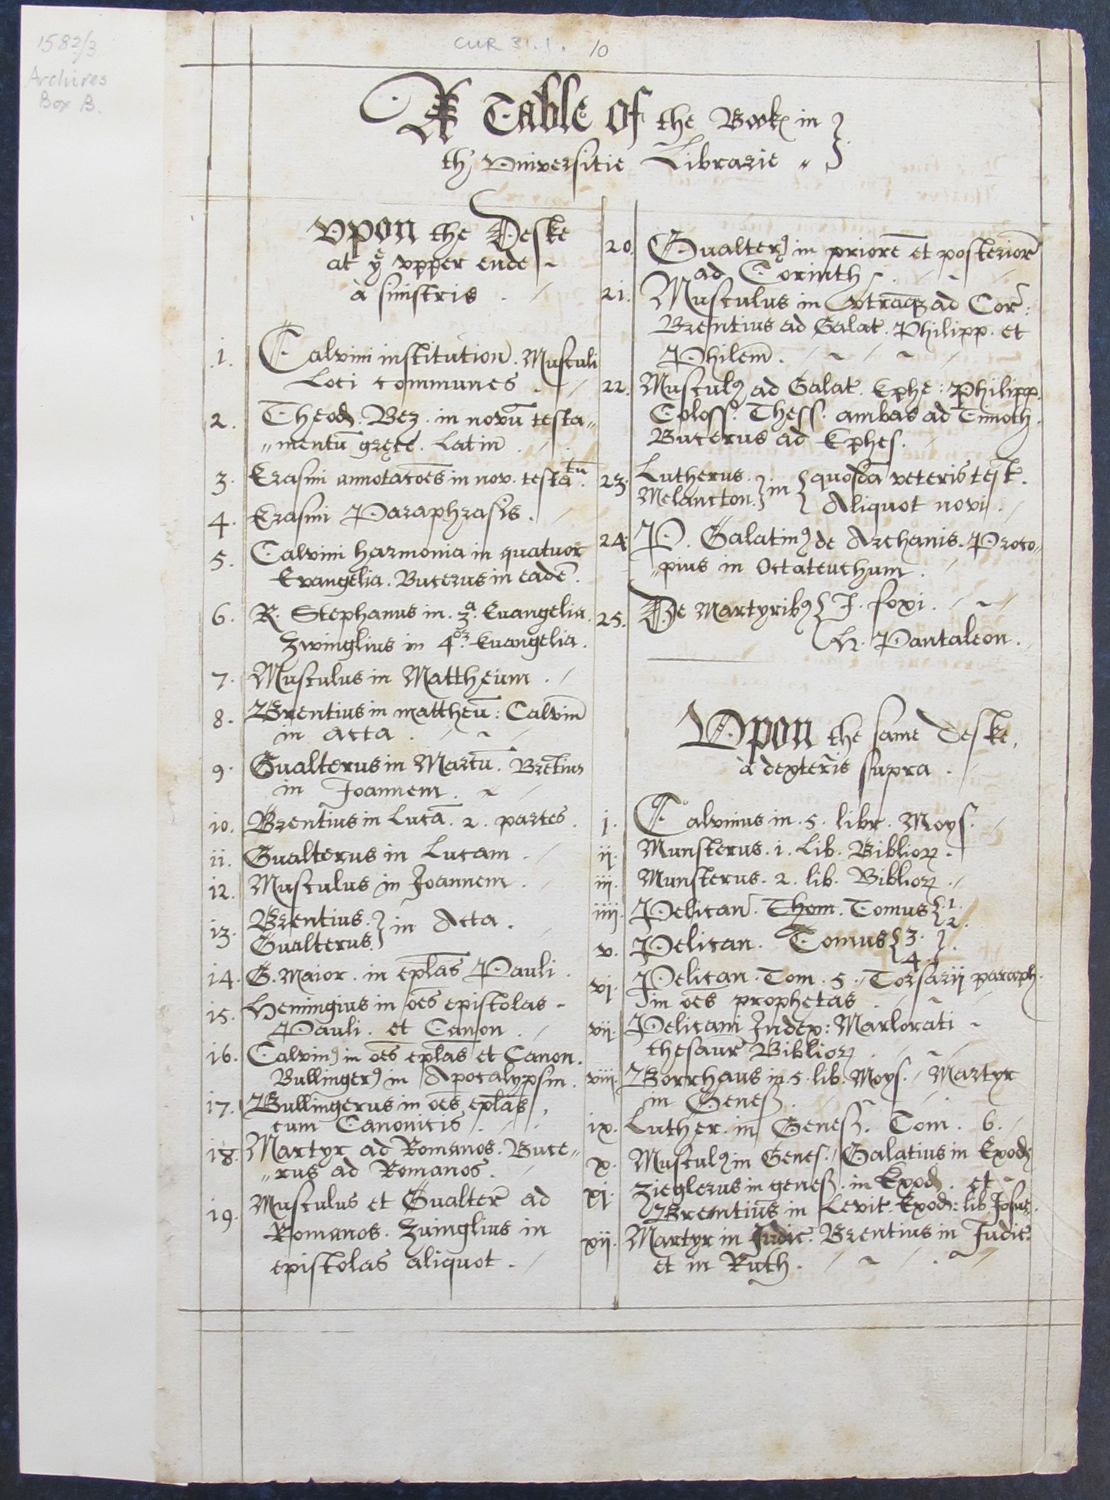 1582/3
Archives
Box B.
CUR 31.1. 10
A Table of the Bookes in
the Vniversitie Librarie
Vpon the Deske
at yͤ vpper ende
à sinistris .
1. Calvini institution. Musculi
Loci communes .
2. Theod. Bez. in novū testa„
„mentū gręce. Latin̄
3. Erasmi annotatōes in nov. testātū.
4. Erasmi Paraphrasis.
5. Calvini harmonia in quatuor
Evangelia. Bucerus in eadē.
6. R. Stephanus in. 3ᵃ. Euangelia.
Zwinglius in 4ᵒʳ. Euangelia.
7. Musculus in Mattheum .
8. Brentius in mattheū: Calvin̄
in acta .
9. Gualterus in Marcū. Brētius
in Joannem .
10. Brentius in Lucā. 2. partes.
11. Gualterus in Lucam .
12. Musculus in Joannem .
13. Brentius. } in Acta .
Gualterus }
14. G. Maior. in eplas Pauli .
15. Hemingius in oēs epistolas -
Pauli. et Canon .
16. Calvinꝰ in oēs eplas et Canon.
Bullingerꝰ in Apocalypsin.
17. Bullingerus in oēs, eplas
cum Canonicis .
18. Martyr ad Romanos. Buce„
„rus ad Romanos .
19. Musculus et Gualter̄ ad
Romanos. Zuinglius in
epistolas aliquot .
20. Gualterꝰ in priorē et posteriorē
ad Corinth .
21. Musculus in vtrāqꝫ ad Cor̄:
Brentius ad Galat. Philipp. et
Philem̄ .
22. Musculꝰ ad Galat. Ephe: Philipp.
Coloss. Thess. ambas ad Timoth.
Bucerus ad Ephes.
23. Lutherus. } in { quosdā veteris test.
Melancton. } { Aliquot novi .
24. P. Galatinꝰ de Archanis. Proco„
„pius in Octateuchum .
25. De Martyribꝰ { J. foxi .
{ H. Pantaleon .
Vpon the same Deske,
à dexteris supra .
j. Calvinus in. 5. libr. Moys.
ij. Munsterus. 1. Lib. Bibliorꝝ.
iij. Munsterus. 2. lib. Bibliorꝝ
iiij. Pelican̄. Thom. Tomus { 1. 2.
v. Pelican. Tomus { 3. 4. }
vj. Pelican. Tom. 5. Torsarij paraph.
in oēs prophetas .
vij. Pelicani Index: Marlorati
thesaur̄ Bibliorꝝ
viij. Borrhaus in. 5. lib. Moys. Martyr
in Genes .
ix. Luther. in Genes. Tom. 6.
x. Musculꝰ in Genes. Galatius in Exod.
xj. Zieglerus in genes. in Exod. et
Brentius in Levit. Exod: lib. Josue.
xij. Martyr in Judic. Brentius in Judic.
et in Ruth.